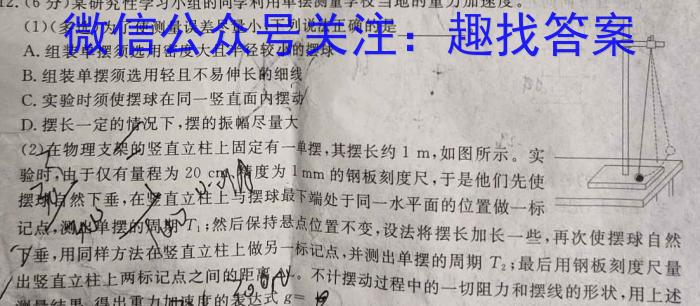 12.(6分)某研究性学习小组的同学利用单摆测量学校当地的重力加速度。
微信公众号关注：趣找答案
(1)(多选)为了使测量误差尽量小,下列说法正确的是
A. 组装单摆须选用密度大且半径较小的摆球
B. 组装单摆须选用轻且不易伸长的细线
C. 实验时须使摆球在同一竖直面内摆动
D. 摆长一定的情况下,摆的振幅尽量大
(2)在物理支架的竖直立柱上固定有一单摆,其摆长约1 m,如图所示。实
验时,由于仅有量程为20 cm、精度为1 mm的钢板刻度尺,于是他们先使
摆球自然下垂,在竖直立柱上与摆球最下端处于同一水平面的位置做一标
记点,测出单摆的周期T₁;然后保持悬点位置不变,设法将摆长加长一些,再次使摆球自然
下垂,用同样方法在竖直立柱上做另一标记点,并测出单摆的周期T₂;最后用钢板刻度尺量
出竖直立柱上两标记点之间的距离 。不计摆动过程中的一切阻力和摆线的形状,用上述
测量结果,得出重力加速度的表达式g=